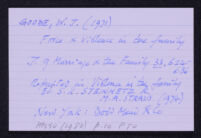 GOODE, W.J. (1971)
Force & Violence in the family
J. of Marriage & the Family 33, 624-636
Reprinted in Violence in the family
Ed S.K. STEINMETZ &
M.A. STRAUS (1974)
New York: Dodd Mead & Co